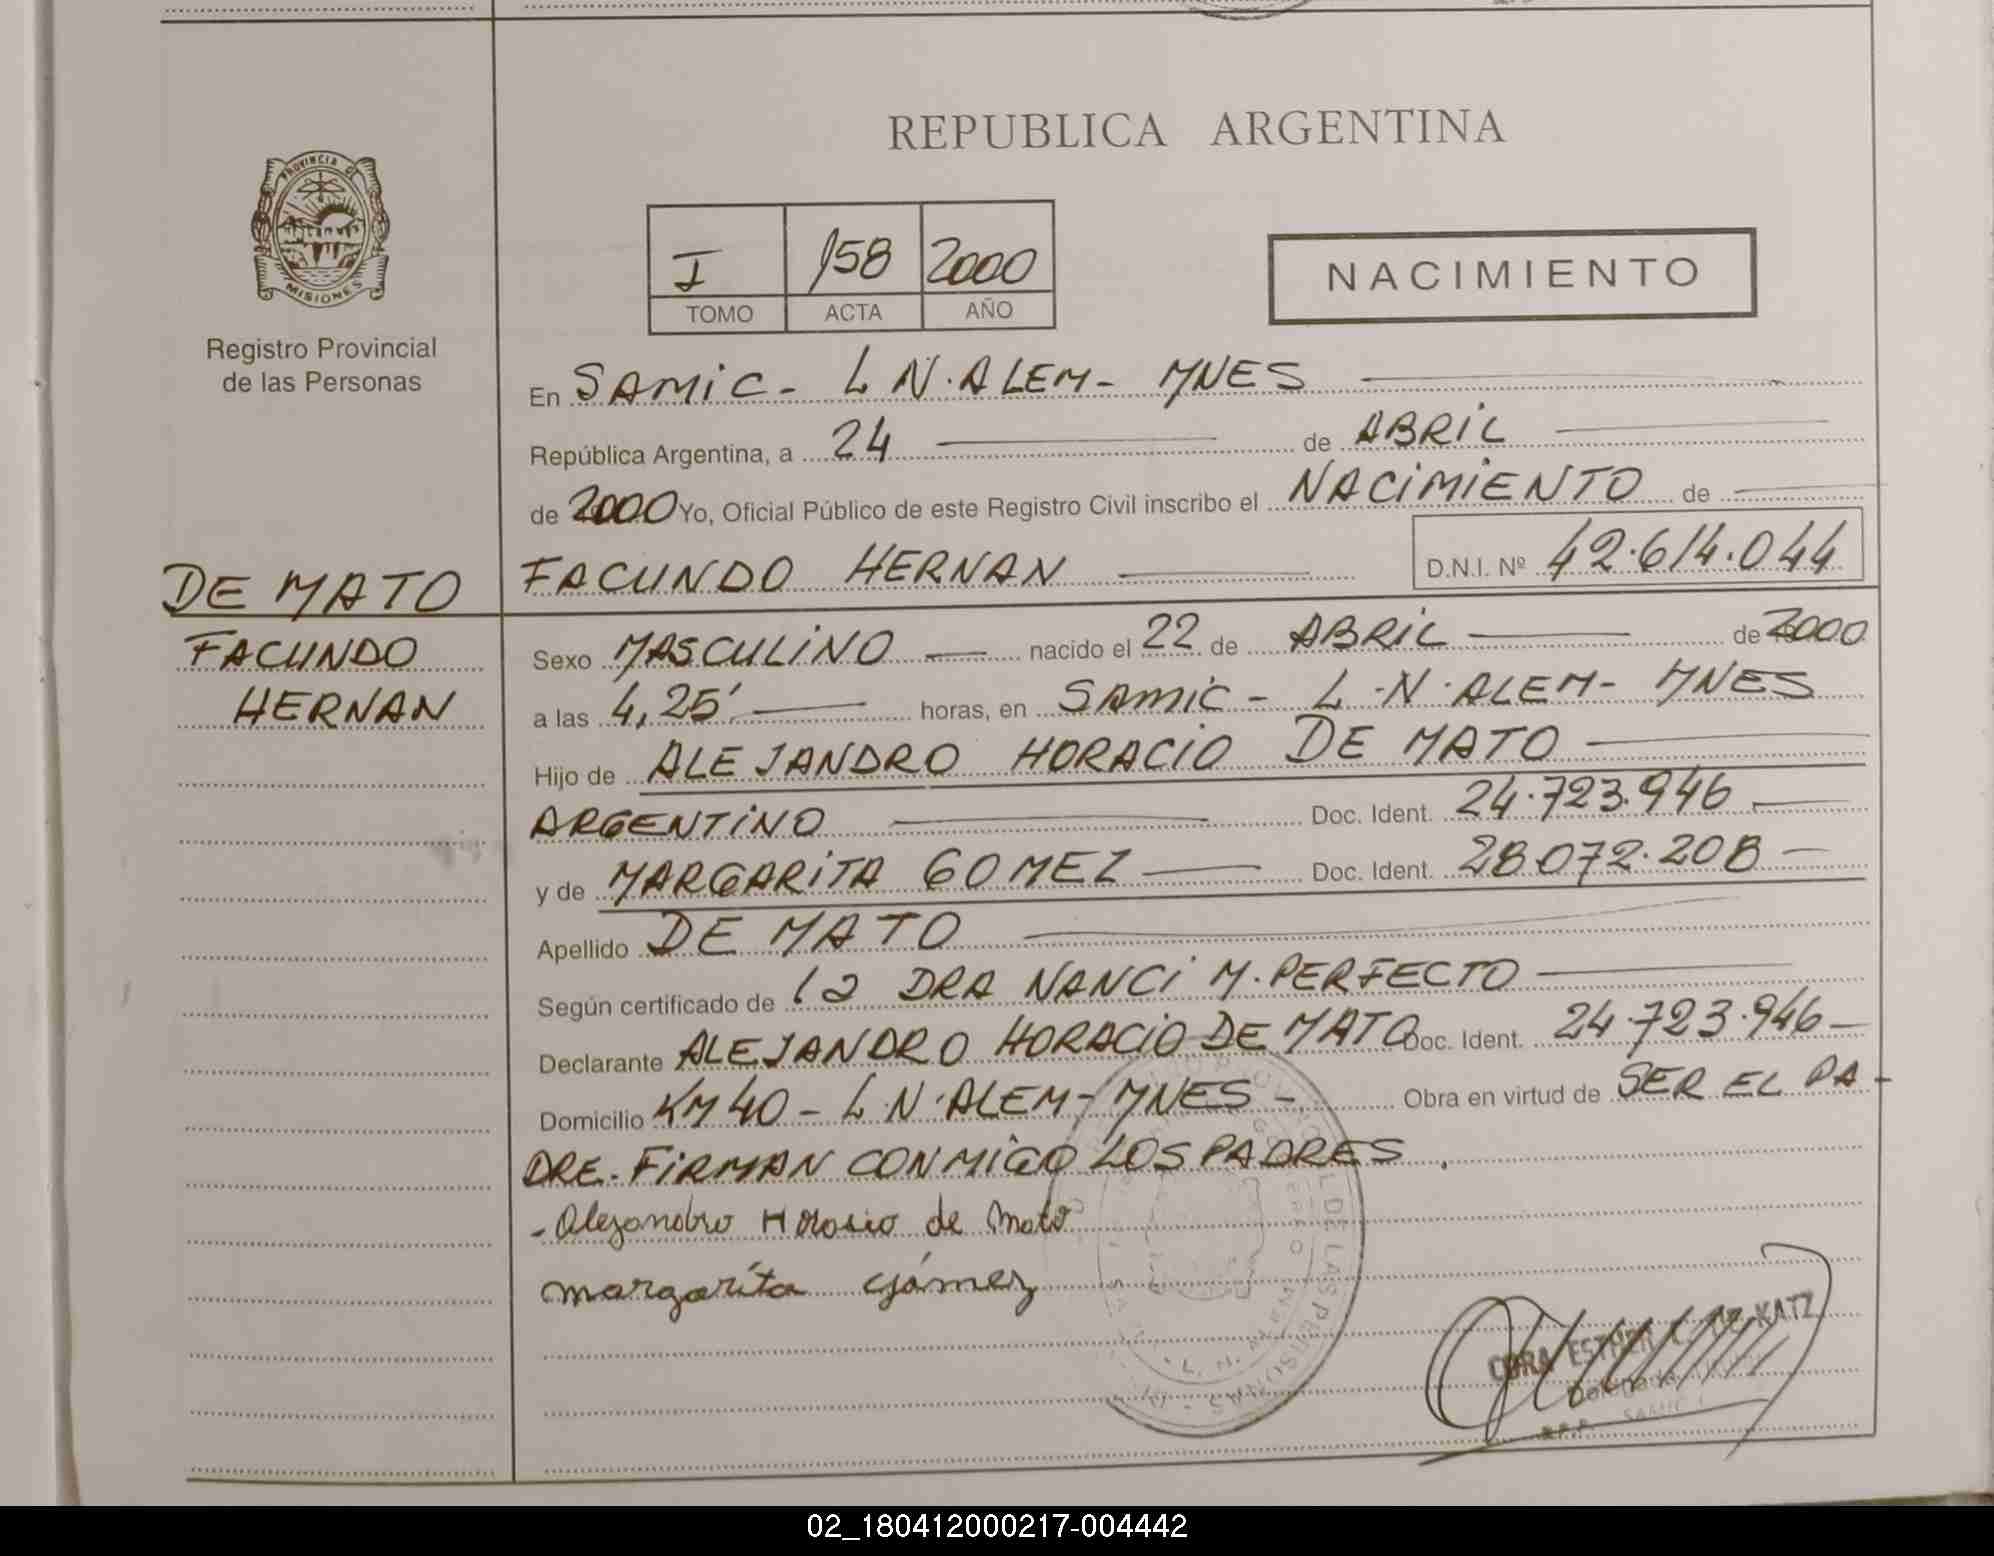 REPUBLICA ARGENTINA
PROVINCIA DE
MISIONES
Registro Provincial
de las Personas
I 158 2000
TOMO ACTA AÑO
NACIMIENTO
En SAMIC - L N. ALEM - MNES
República Argentina, a 24 de ABRIL
de 2000 Yo, Oficial Público de este Registro Civil inscribo el NACIMIENTO de
FACUNDO HERNAN D.N.I. Nº 42.614.044
DE MATO
FACUNDO
HERNAN
Sexo MASCULINO nacido el 22 de ABRIL de 2000
a las 4,25' horas, en SAMIC - L.N. ALEM - MNES
Hijo de ALEJANDRO HORACIO DE MATO
ARGENTINO Doc. Ident. 24.723.946
y de MARGARITA GOMEZ Doc. Ident. 28.072.208
Apellido DE MATO
Según certificado de la DRA NANCI M. PERFECTO
Declarante ALEJANDRO HORACIO DE MATO Doc. Ident. 24.723.946
Domicilio KM 40 - L.N. ALEM - MNES - Obra en virtud de SER EL PA-
DRE. FIRMAN CONMIGO LOS PADRES.
- Alejandro Horasio de Mato
margarita gómez
ESTHER DE KATZ
R.P.P. SAMIC
DE LAS PERSONAS
02_180412000217-004442